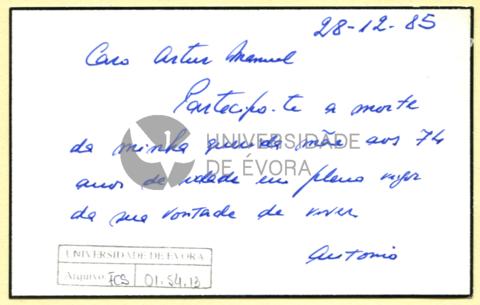 28-12-85
Caro Artur Manuel
Partecipo-te a morte
da minha querida mãe aos 74
anos de idade em pleno vigor
da sua vontade de viver
Antonio
UNIVERSIDADE
DE ÉVORA
UNIVERSIDADE DE EVORA
Arquivo: FCS 01.S4.13